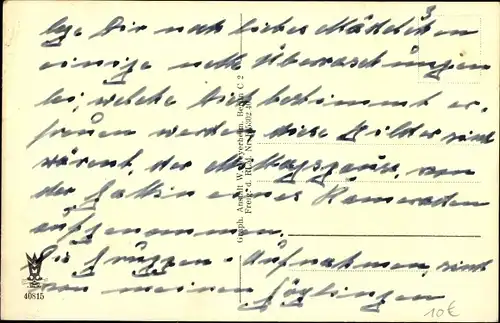 lege Dir noch liebes Mädchen
3
einige nette Überraschungen
bei, welche Dich bestimmt er-
freuen werden diese Bilder sind
wärent der Mittagspause, von
der Gattin eines Kameraden
aufgenommen.
Die Gruppen-Aufnahmen, sind
von meinen Zöglingen
Graph. Anstalt W. Meyerheim, Berlin C 2
Freig. d. RLM. Nr.
40815
10€